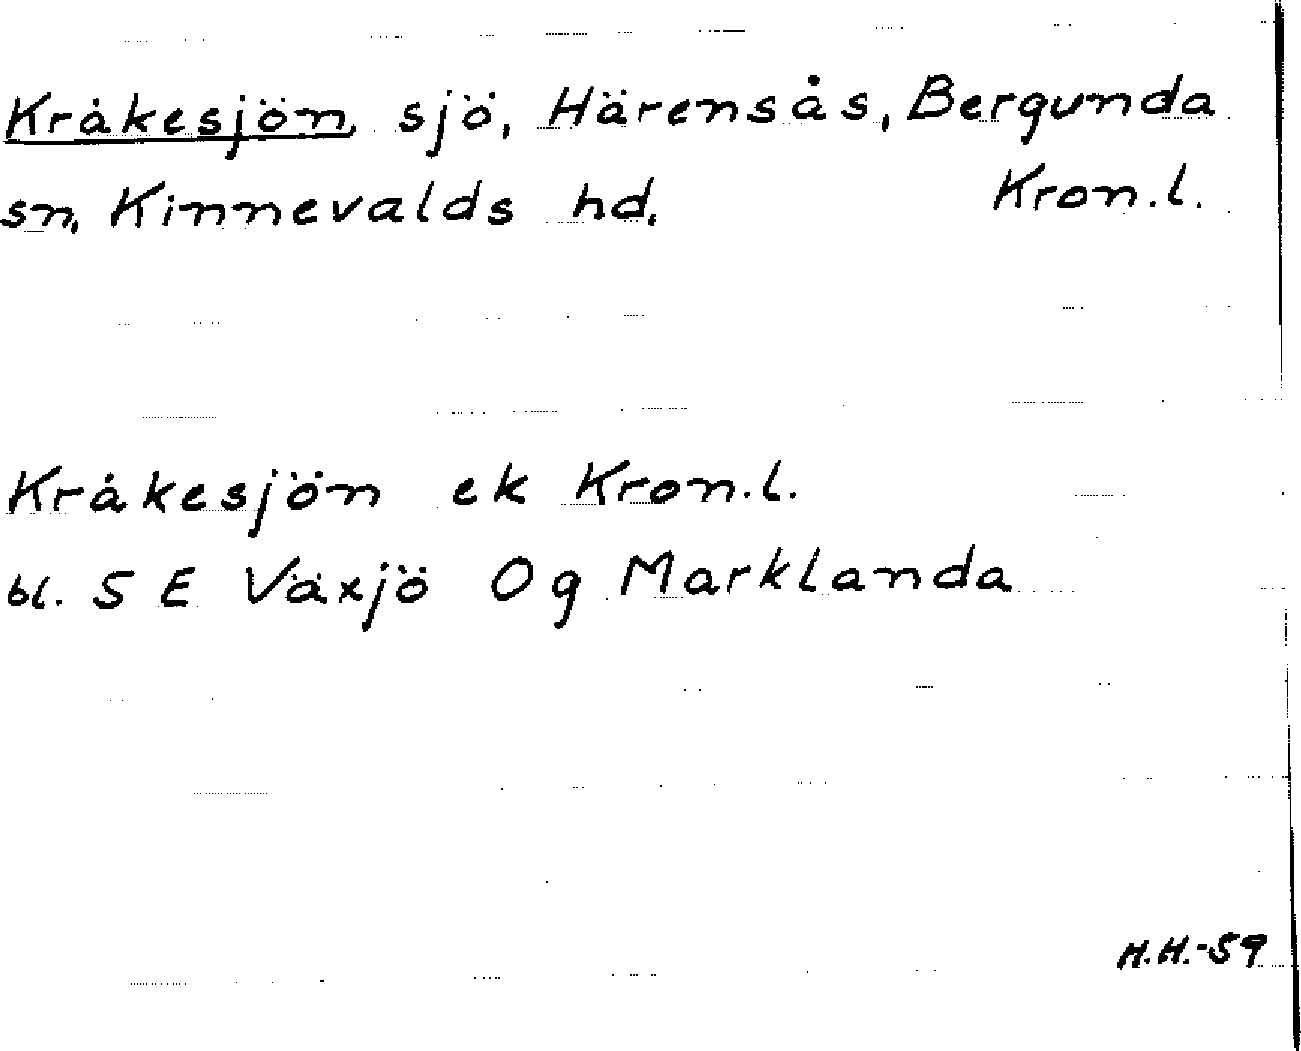 Kråkesjön, sjö, Härensås, Bergunda
sn, Kinnevalds hd, Kron.l.
Kråkesjön ek Kron.l.
bl. S E Växjö Og Marklanda
H.H.-59